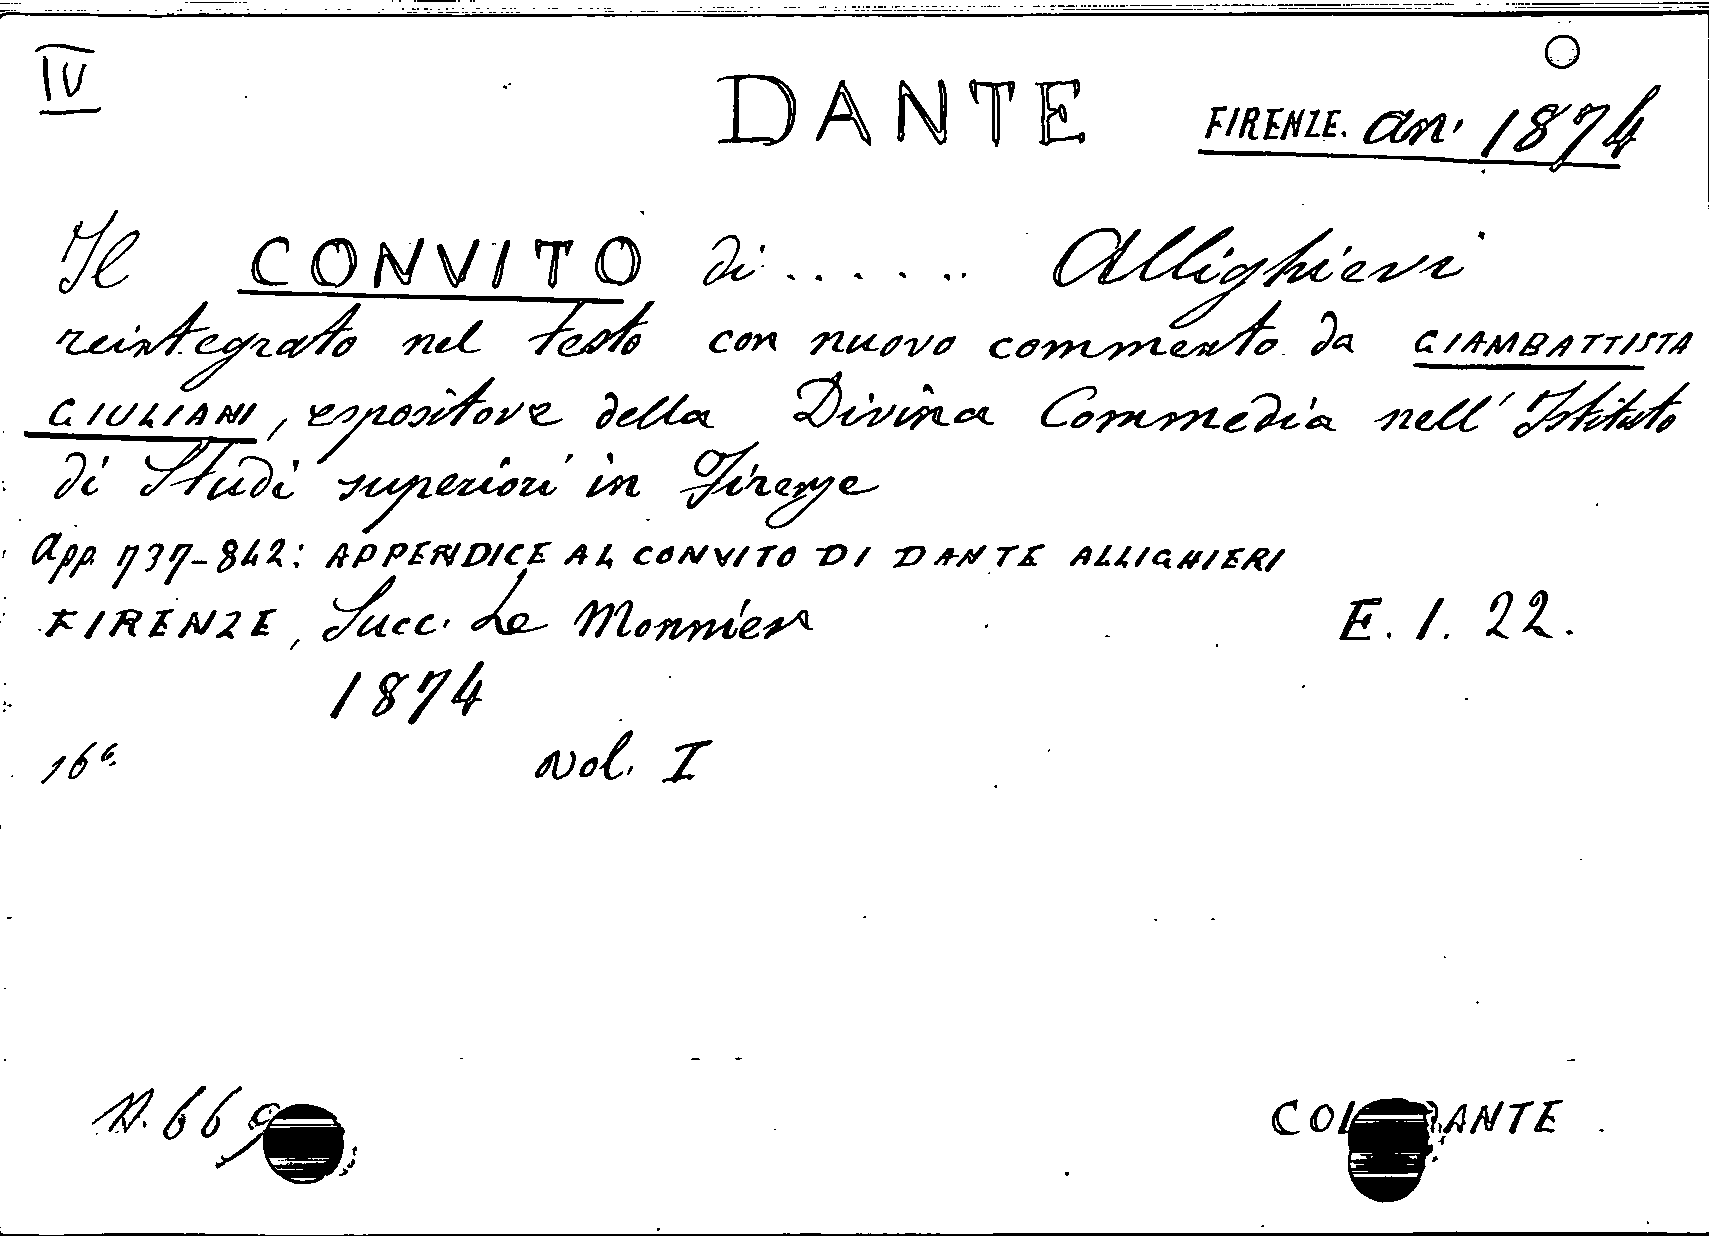 IV
DANTE FIRENZE. an. 1874
Il CONVITO di ...... Allighieri
reintegrato nel testo con nuovo commento da GIAMBATTISTA
GIULIANI, espositore della Divina Commedia nell' Istituto
di Studi superiori in Firenze
App. 737-842: APPENDICE AL CONVITO DI DANTE ALLIGHIERI
FIRENZE, Succ. Le Monnier E. I. 22.
1874
16º. vol. I
N. 669 DANTE